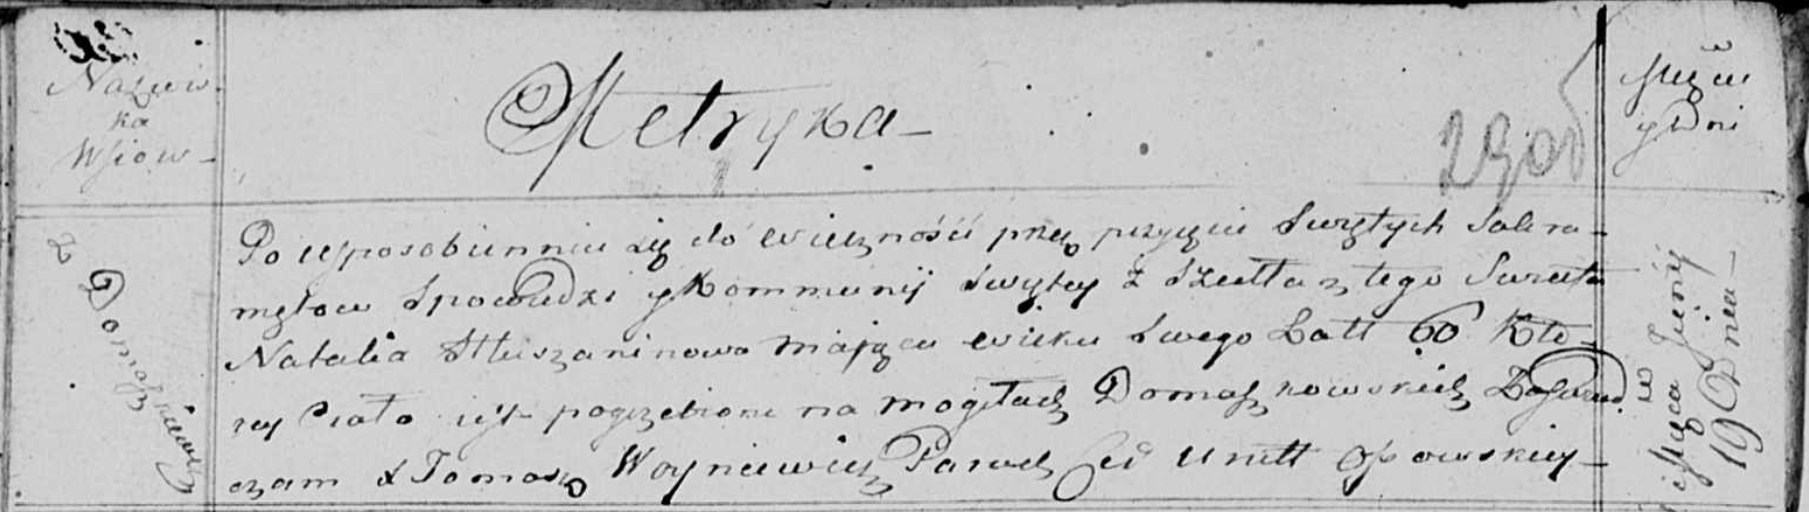 Nazwis
ka
Wsiow
Metryka
29об
Mca
y Dni
z Domaszkowicz
Po usposobienniu się do wieczności przez przyięcie Swiętych Sakra-
mętow Spowiedzi y Kommunij Swiętey z Szedła z tego Swiata
Natalia Słuszaninowa mająca wieku Swego Latt 60 Kto-
rey Ciało iest pogrzebione na mogiłach Domaszkowskich Zaswiad
czam X Tomasz Woyniewicz Paroch Cer Unitt Osowskiey
Miesiąca Junij
19 Dnia